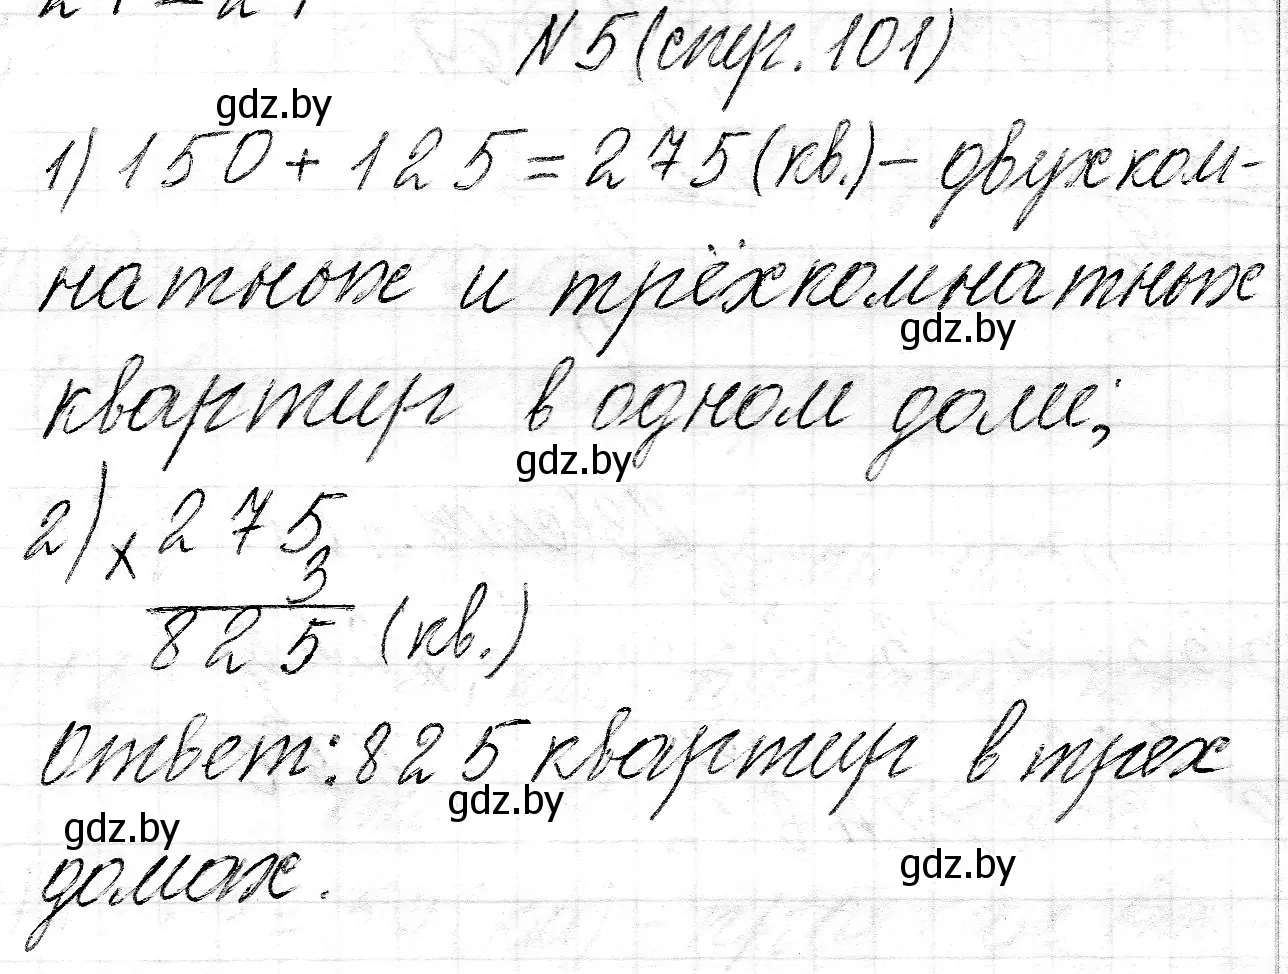 N 5 (стр. 101)
gdz.by
1) 150 + 125 = 275 (кв.) – двухком-
натных и трёхкомнатных
gdz.by
квартир в одном доме;
gdz.by
2) × 275
3
825 (кв.)
Ответ: 825 квартир в трех
gdz.by
gdz.by
домах.
gdz.by